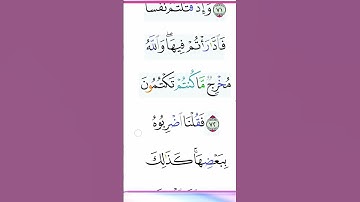 ﴿٧١﴾ وَإِذْ قَتَلْتُمْ نَفْسًا
فَادَّارَأْتُمْ فِيهَا ۖ وَاللَّهُ
مُخْرِجٌ مَّا كُنتُمْ تَكْتُمُونَ
﴿٧٢﴾ فَقُلْنَا اضْرِبُوهُ
بِبَعْضِهَا ۚ كَذَٰلِكَ